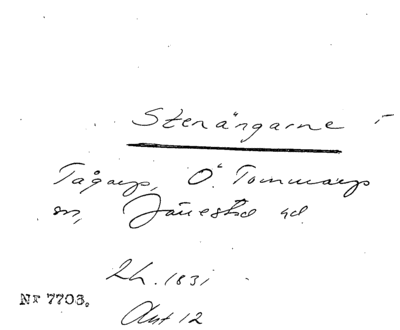 Stenängarne i
Tågarp, Ö. Tommarp
sn, Järrestad hd
Lh. 1831
Nr 7703.
Akt 12